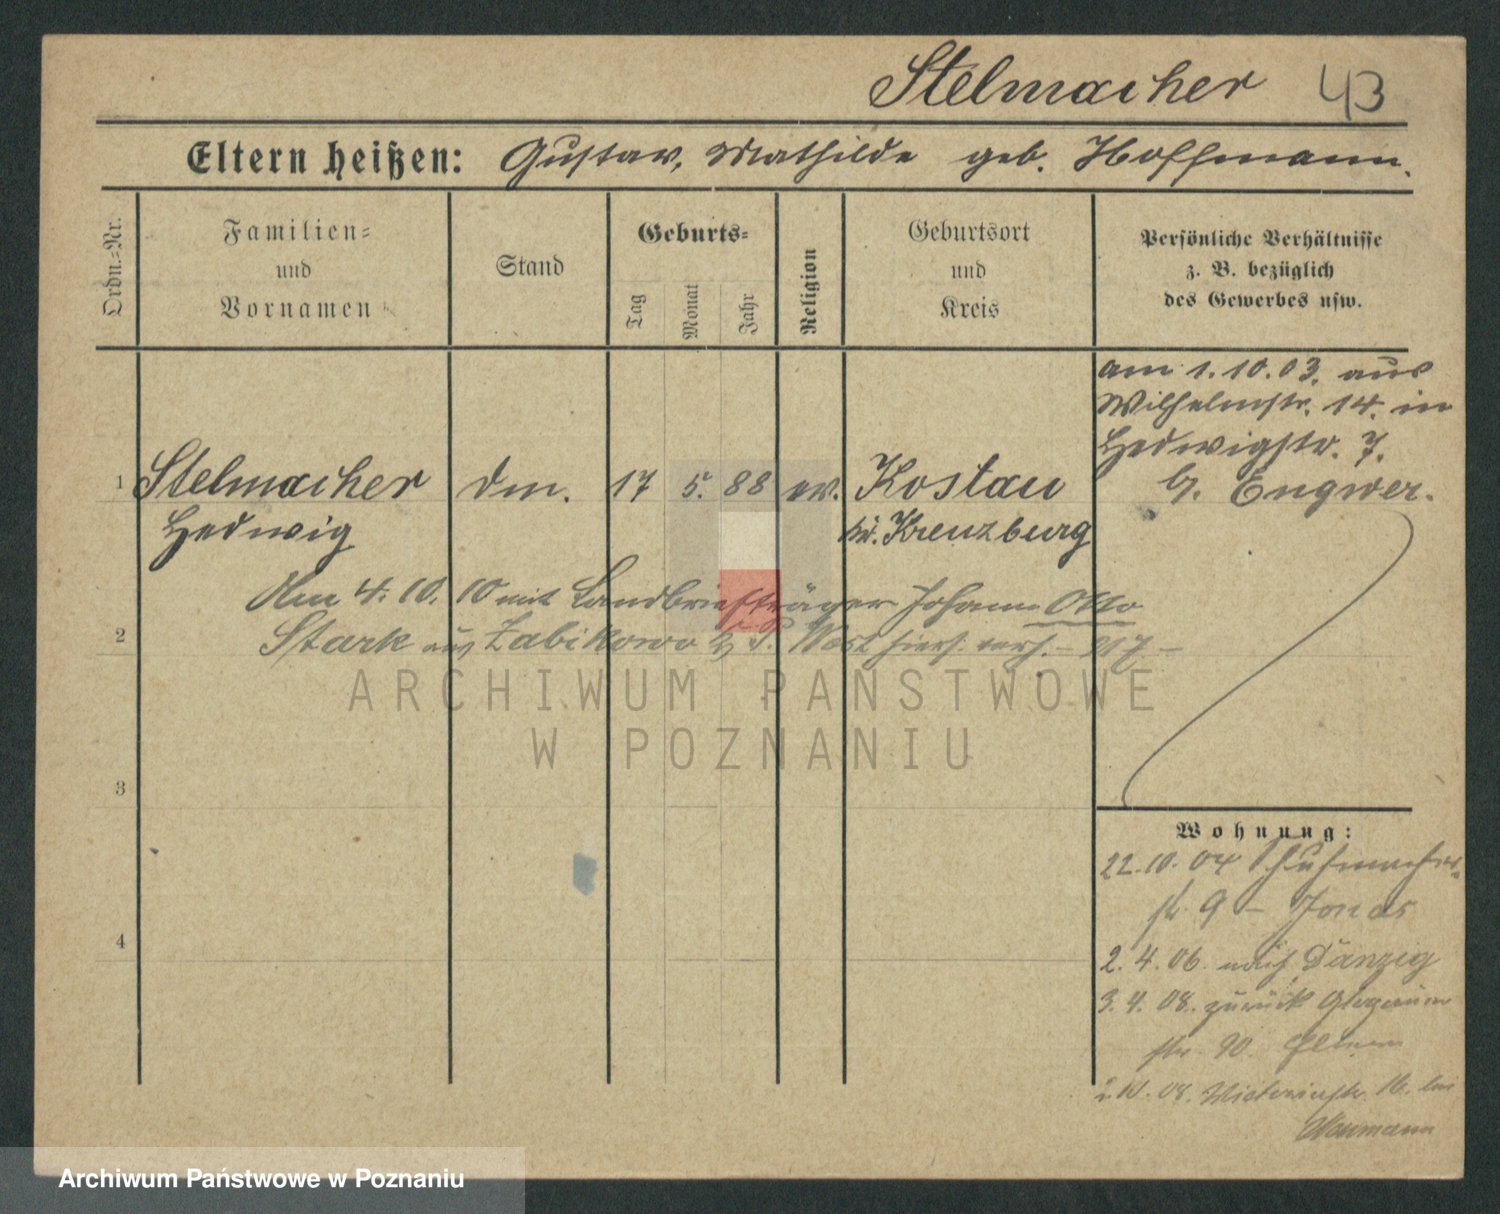 Stelmacher 43
Eltern heißen: Gustav, Mathilde geb. Hoffmann.
Ordn.-Nr.
Familien-
und
Vornamen
Stand
Geburts-
Tag
Monat
Jahr
Religion
Geburtsort
und
Kreis
Persönliche Verhältnisse
z. B. bezüglich
des Gewerbes usw.
am 1.10.03. aus
Wilhelmstr. 14. in
Hedwigstr. 7.
b. Engwer.
1 Stelmacher dm. 17 5. 88 ev. Kostau
Hedwig Kr. Kreuzburg
Am 4.10.10 mit Landbriefträger Johann Otto
2 Stark aus Zabikowo hiers. verh.
3
4
Wohnung:
22.10.04 Schuhmacher-
str. 9 - Jonas
2.4.06. nach Danzig
3.4.08. zurück Glogauer
str. 90.
2.10.08. Victoriastr. 16. bei
Naumann
ARCHIWUM PAŃSTWOWE
W POZNANIU
Archiwum Państwowe w Poznaniu